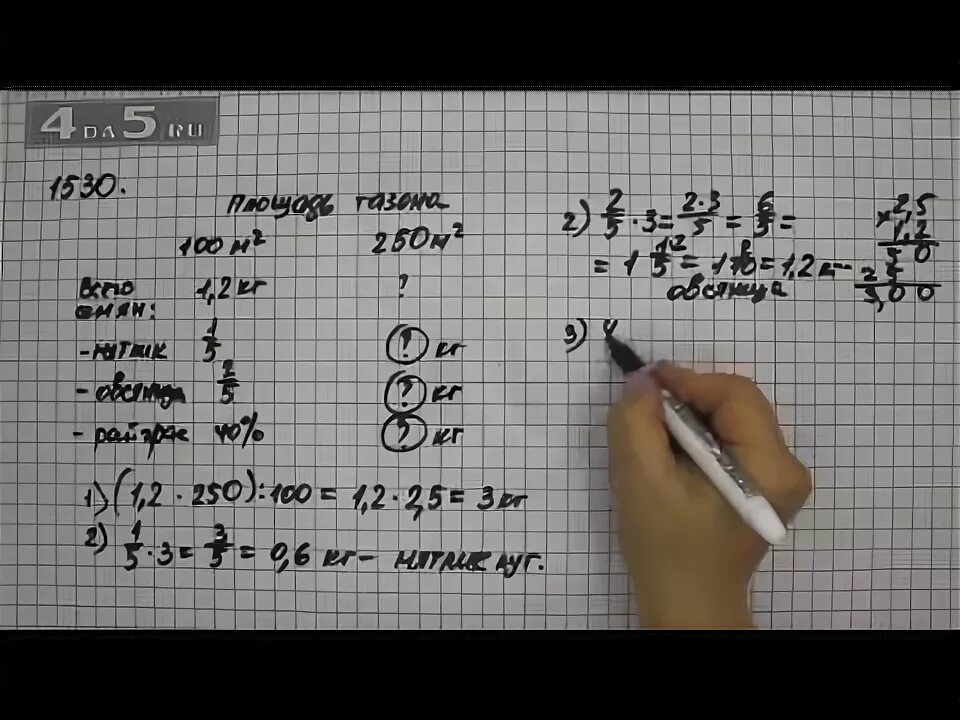 4 DA 5 RU
1530.
Площадь газона
100 м² 250 м²
Всего 1,2 кг ?
семян:
- мятлик 1/5 ? кг
- овсяница 2/5 ? кг
- райграс 40% ? кг
1) (1,2 · 250) : 100 = 1,2 · 2,5 = 3 кг
2) 1/5 · 3 = 3/5 = 0,6 кг – мятлик луг.
2) 2/5 · 3 = 2·3/5 = 6/5 =
= 1 1/5 = 1 2/10 = 1,2 кг –
овсяница
× 2,5
1,2
5 0
2 5
3,0 0
3) 4